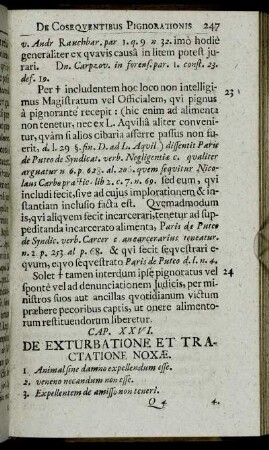 DE COSEQVENTIBUS PIGNORATIONIS 247
v. Andr Rauchbar. par 1. q. 9 n 32. imò hodiè
generaliter ex qvavis causâ in litem potest ju-
rari. Dn. Carpzov. in forens. par 1. const. 23.
def. 19.
Per † includentem hoc loco non intelligi- 23
mus Magistratum vel Officialem, qvi pignus
à pignorante recepit: (hic enim ad alimenta
non tenetur, nec ex L. Aqviliâ aliter conveni-
tur, qvàm si alios cibaria afferre passus non fu-
erit, d. l. 29 §. fin. D. ad L. Aqvil.) dissentit Paris
de Puteo de Syndicat. verb. Negligentia c. qualiter
arguatur n 6. p. 268. al. 206. qvem seqvitur Nico-
laus Carbo practic. lib 2. c. 7. n. 69. sed eum, qvi
includi fecit, sive ad cujus implorationem & in-
stantiam inclusio facta est. Qvemadmodum
is, qvi aliqvem fecit incarcerari, tenetur ad sup-
peditanda incarcerato alimenta, Paris de Puteo
de Syndic. verb. Carcer c. an carcerarius tenetur.
n. 2 p. 253 al p. 68. & qvi fecit seqvestrari e-
qvum, eqvo seqvestrato Paris de Puteo d. l. n. 4.
Solet † tamen interdum ipse pignoratus vel 24
spontè vel ad denunciationem Judicis, per mi-
nistros suos aut ancillas qvotidianum victum
præbere pecoribus captis, ut onere alimento-
rum restituendorum liberetur.
CAP. XXVI.
DE EXTURBATIONE ET TRA-
CTATIONE NOXÆ.
1. Animal sine damno expellendum esse.
2. veneno necandum non esse.
3. Expellentem de amisso non teneri.
Q 4 4.